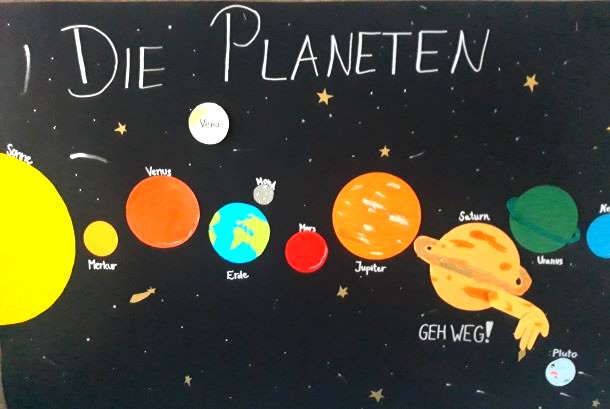 DIE PLANETEN
Venus
Sonne
Venus
Mond
Merkur
Erde
Mars
Jupiter
Saturn
Uranus
Ne
GEH WEG!
Pluto